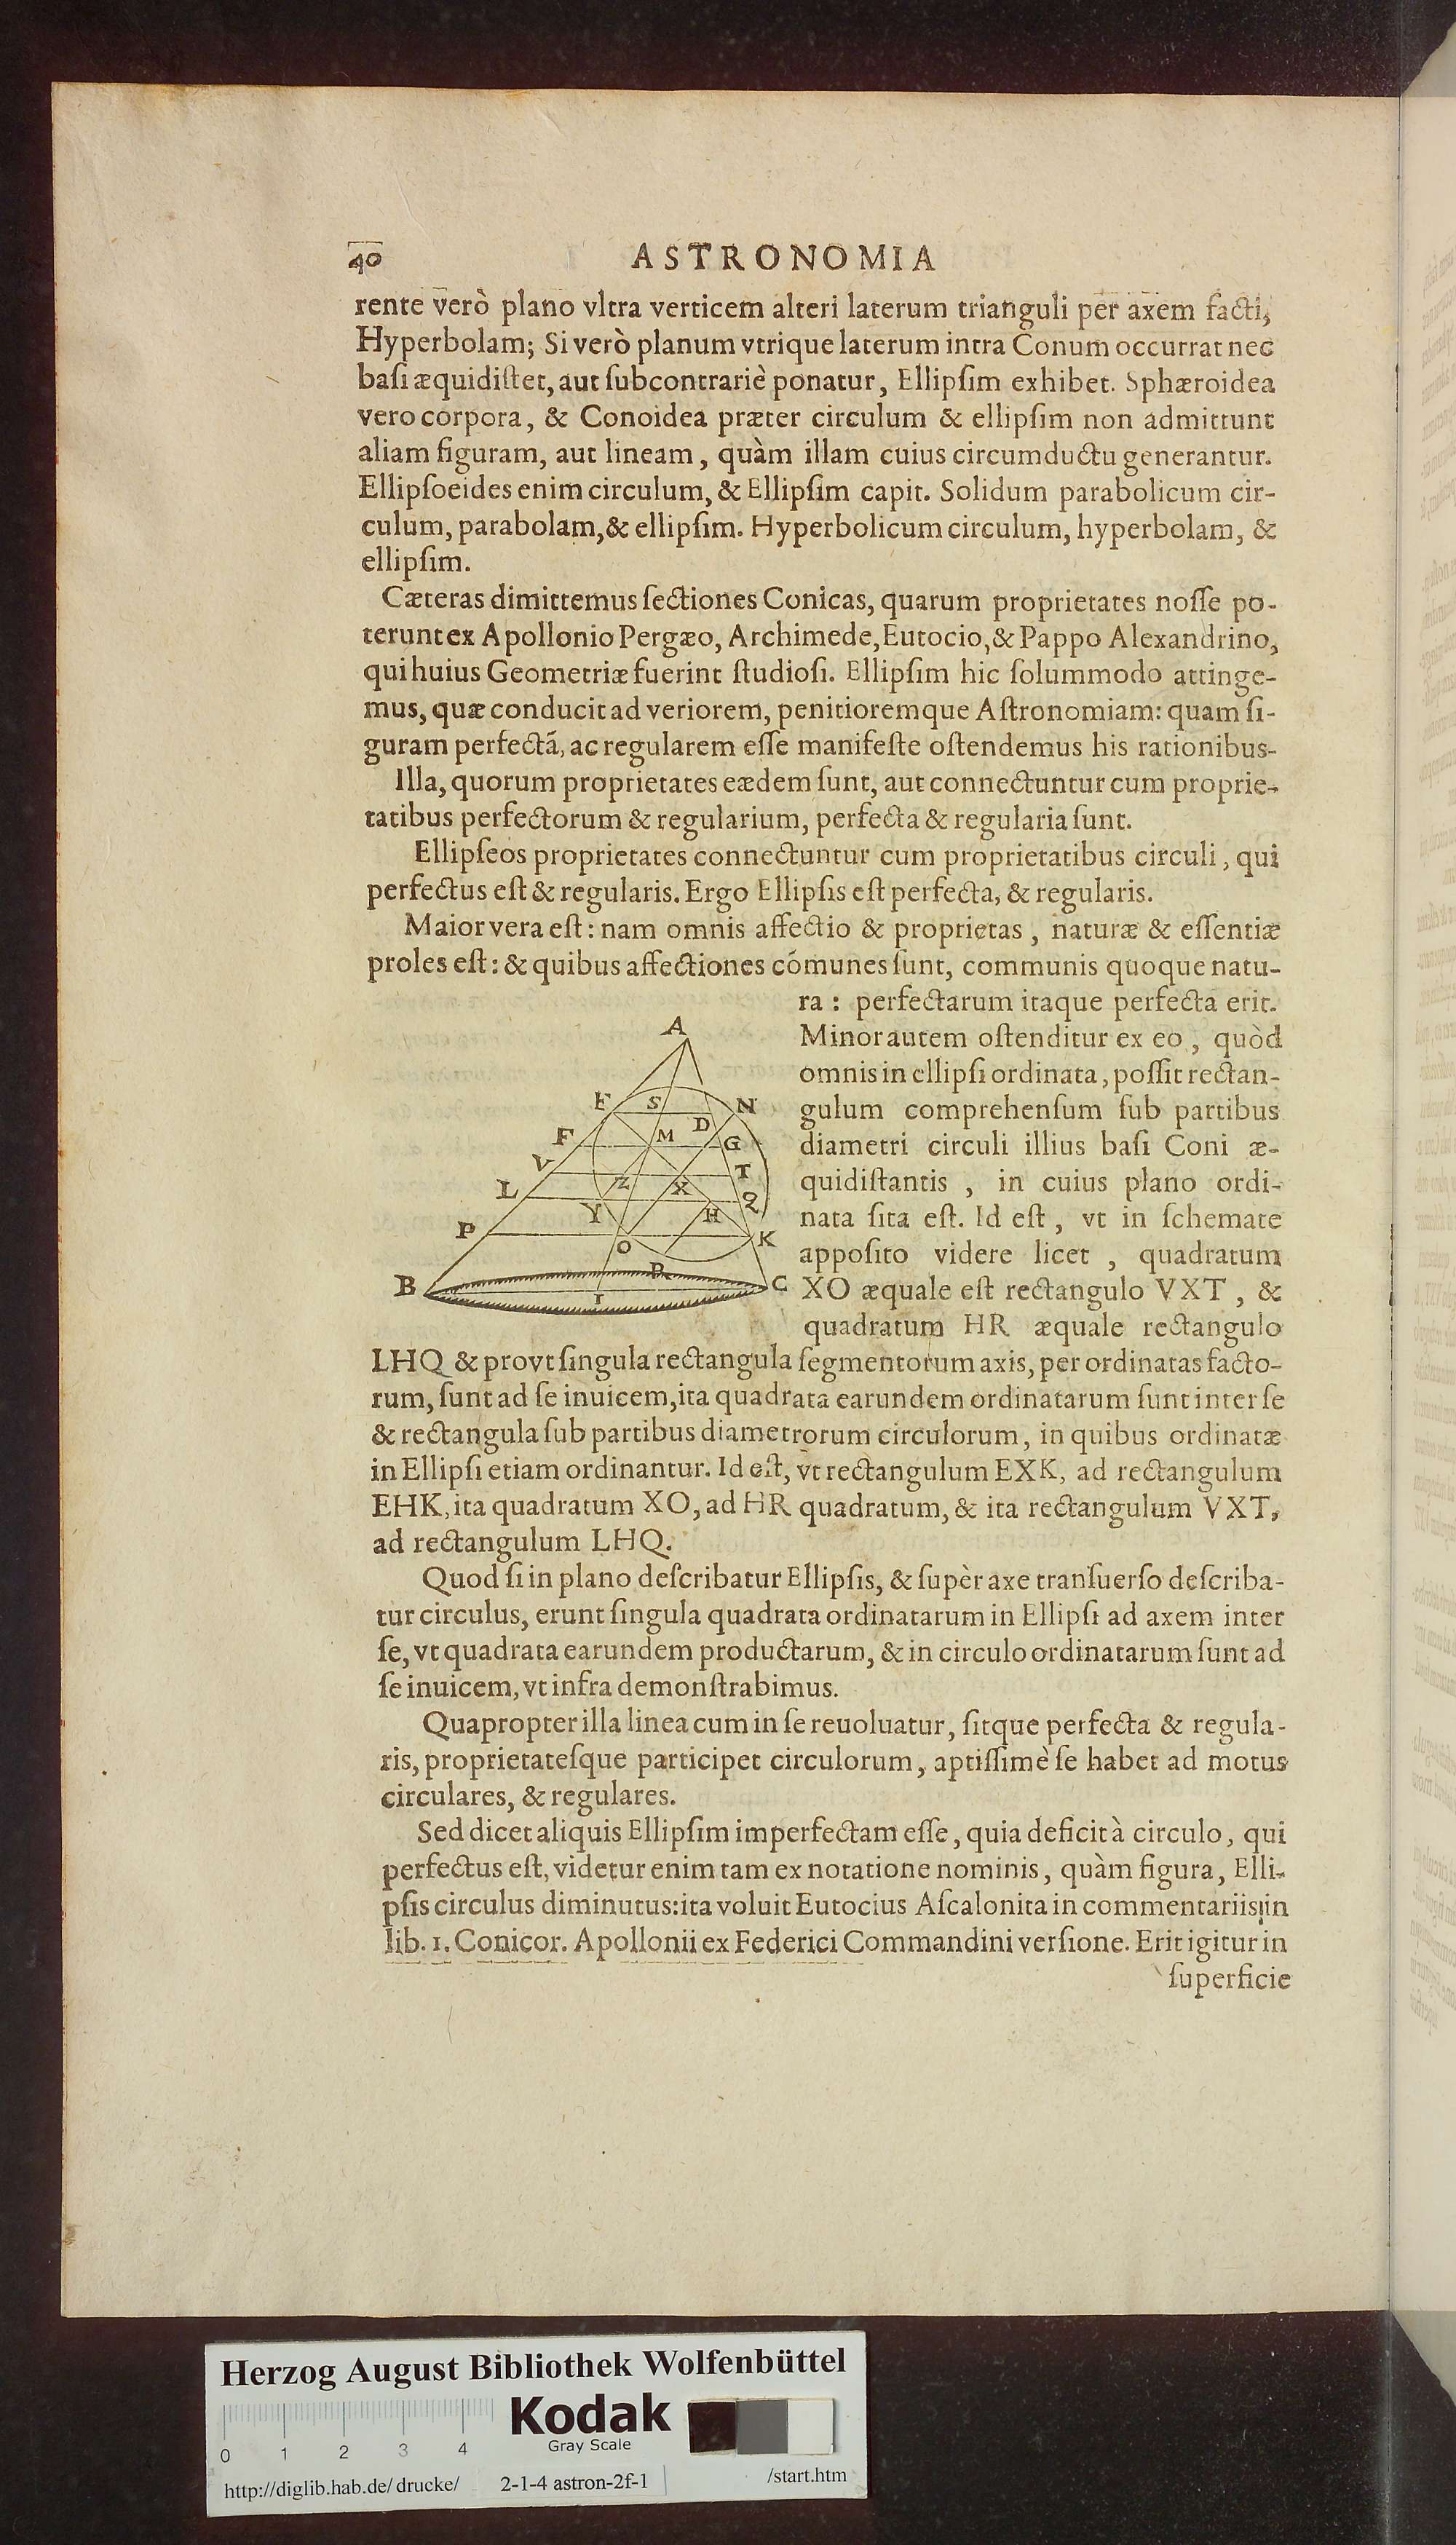 40 ASTRONOMIA
rente verò plano vltra verticem alteri laterum trianguli per axem facti,
Hyperbolam; Si verò planum vtrique laterum intra Conum occurrat nec
basi æquidistet, aut ſubcontrariè ponatur, Ellipſim exhibet. Sphæroidea
vero corpora, & Conoidea præter circulum & ellipſim non admittunt
aliam figuram, aut lineam, quàm illam cuius circumductu generantur.
Ellipſoeides enim circulum, & Ellipſim capit. Solidum parabolicum cir-
culum, parabolam, & ellipſim. Hyperbolicum circulum, hyperbolam, &
ellipſim.
Cæteras dimittemus ſectiones Conicas, quarum proprietates noſſe po-
terunt ex Apollonio Pergæo, Archimede, Eutocio, & Pappo Alexandrino,
qui huius Geometriæ fuerint ſtudioſi. Ellipſim hic ſolummodo attinge-
mus, quæ conducit ad veriorem, penitioremque Aſtronomiam: quam fi-
guram perfectã, ac regularem eſſe manifeſte oſtendemus his rationibus-
Illa, quorum proprietates eædem ſunt, aut connectuntur cum proprie-
tatibus perfectorum & regularium, perfecta & regularia ſunt.
Ellipſeos proprietates connectuntur cum proprietatibus circuli, qui
perfectus eſt & regularis. Ergo Ellipſis eſt perfecta, & regularis.
Maior vera eſt: nam omnis affectio & proprietas, naturæ & eſſentiæ
proles eſt: & quibus affectiones cómunes ſunt, communis quoque natu-
ra: perfectarum itaque perfecta erit.
Minor autem oſtenditur ex eo, quòd
omnis in ellipſi ordinata, poſſit rectan-
gulum comprehenſum ſub partibus
diametri circuli illius baſi Coni æ-
quidiſtantis, in cuius plano ordi-
nata ſita eſt. Id eſt, vt in ſchemate
appoſito videre licet, quadratum
XO æquale eſt rectangulo VXT, &
quadratum HR æquale rectangulo
A
E S N
F M D G
V Z X T
L Y H Q
P O K
B R C
I
LHQ & prout ſingula rectangula ſegmentorum axis, per ordinatas facto-
rum, ſunt ad ſe inuicem, ita quadrata earundem ordinatarum ſunt inter ſe
& rectangula ſub partibus diametrorum circulorum, in quibus ordinatæ
in Ellipſi etiam ordinantur. Id eſt, vt rectangulum EXK, ad rectangulum
EHK, ita quadratum XO, ad HR quadratum, & ita rectangulum VXT,
ad rectangulum LHQ.
Quod ſi in plano deſcribatur Ellipſis, & ſupèr axe tranſuerſo deſcriba-
tur circulus, erunt ſingula quadrata ordinatarum in Ellipſi ad axem inter
ſe, vt quadrata earundem productarum, & in circulo ordinatarum ſunt ad
ſe inuicem, vt infra demonſtrabimus.
Quapropter illa linea cum in ſe reuoluatur, ſitque perfecta & regula-
ris, proprietateſque participet circulorum, aptiſſimè ſe habet ad motus
circulares, & regulares.
Sed dicet aliquis Ellipſim imperfectam eſſe, quia deficit à circulo, qui
perfectus eſt, videtur enim tam ex notatione nominis, quàm figura, Elli-
pſis circulus diminutus: ita voluit Eutocius Aſcalonita in commentariis in
lib. 1. Conicor. Apollonii ex Federici Commandini verſione. Erit igitur in
ſuperficie
Herzog August Bibliothek Wolfenbüttel
Kodak
Gray Scale
0 1 2 3 4
http://diglib.hab.de/drucke/ 2-1-4 astron-2f-1 /start.htm